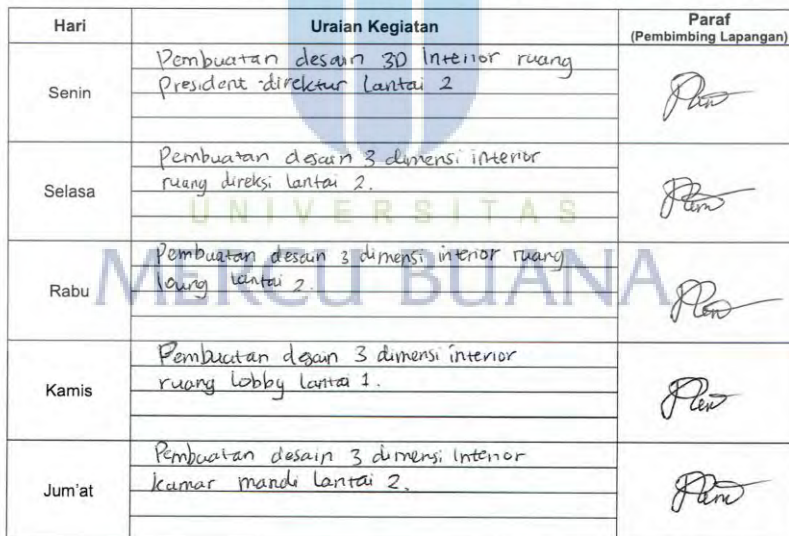 Hari
Uraian Kegiatan
Paraf
(Pembimbing Lapangan)
Senin
Pembuatan desain 3D Interior ruang
President-direktur Lantai 2
Selasa
Pembuatan desain 3 dimensi interior
ruang direksi lantai 2.
UNIVERSITAS
MERCU BUANA
Rabu
Pembuatan desain 3 dimensi interior ruang
loung lantai 2.
Kamis
Pembuatan desain 3 dimensi interior
ruang Lobby lantai 1.
Jum'at
Pembuatan desain 3 dimensi Interior
kamar mandi Lantai 2.